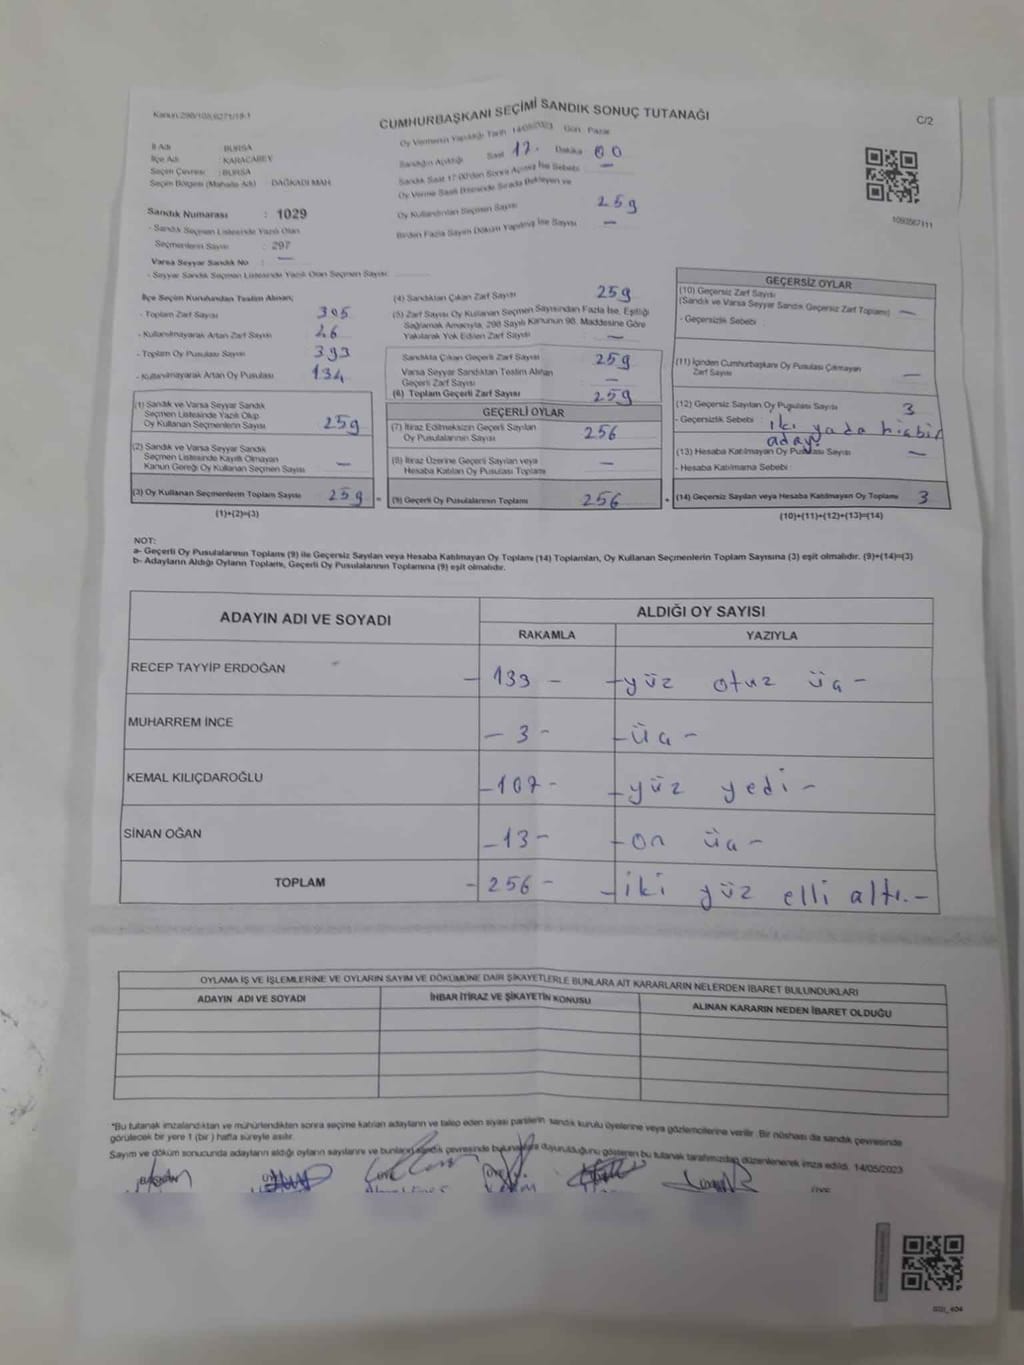 Kanun:298/105,6271/19-1
CUMHURBAŞKANI SEÇİMİ SANDIK SONUÇ TUTANAĞI
C/2
İl Adı : BURSA
İlçe Adı : KARACABEY
Seçim Çevresi : BURSA
Seçim Bölgesi (Mahalle Adı) DAĞKADI MAH.
Sandık Numarası : 1029
- Sandık Seçmen Listesinde Yazılı Olan
Seçmenlerin Sayısı : 297
Varsa Seyyar Sandık No : —
- Seyyar Sandık Seçmen Listesinde Yazılı Olan Seçmen Sayısı:
Oy Vermenin Yapıldığı Tarih 14/05/2023 Gün Pazar
Sandığın Açıldığı Saat 17. Dakika 00
Sandık Saat 17:00'den Sonra Açılmış İse Sebebi —
Oy Verme Saati Bitiminde Sırada Bekleyen ve
Oy Kullandırılan Seçmen Sayısı 259
Birden Fazla Sayım Döküm Yapılmış İse Sayısı —
1093567111
İlçe Seçim Kurulundan Teslim Alınan;
- Toplam Zarf Sayısı
- Kullanılmayarak Artan Zarf Sayısı
- Toplam Oy Pusulası Sayısı 393
- Kullanılmayarak Artan Oy Pusulası 134
(1) Sandık ve Varsa Seyyar Sandık
Seçmen Listesinde Yazılı Olup
Oy Kullanan Seçmenlerin Sayısı 259
(2) Sandık ve Varsa Seyyar Sandık
Seçmen Listesinde Kayıtlı Olmayan
Kanun Gereği Oy Kullanan Seçmen Sayısı —
(3) Oy Kullanan Seçmenlerin Toplam Sayısı 259 =
(1)+(2)=(3)
(4) Sandıktan Çıkan Zarf Sayısı 259
(5) Zarf Sayısı Oy Kullanan Seçmen Sayısından Fazla İse, Eşitliği
Sağlamak Amacıyla, 298 Sayılı Kanunun 98. Maddesine Göre
Yakılarak Yok Edilen Zarf Sayısı —
Sandıkta Çıkan Geçerli Zarf Sayısı 259
Varsa Seyyar Sandıktan Teslim Alınan
Geçerli Zarf Sayısı —
(6) Toplam Geçerli Zarf Sayısı 259
GEÇERLİ OYLAR
(7) İtiraz Edilmeksizin Geçerli Sayılan
Oy Pusulalarının Sayısı 256
(8) İtiraz Üzerine Geçerli Sayılan veya
Hesaba Katılan Oy Pusulası Toplamı —
(9) Geçerli Oy Pusulalarının Toplamı 256 +
GEÇERSİZ OYLAR
(10) Geçersiz Zarf Sayısı
(Sandık ve Varsa Seyyar Sandık Geçersiz Zarf Toplamı) —
- Geçersizlik Sebebi :
(11) İçinden Cumhurbaşkanı Oy Pusulası Çıkmayan
Zarf Sayısı —
(12) Geçersiz Sayılan Oy Pusulası Sayısı 3
- Geçersizlik Sebebi : iki yada hiçbir
aday.
(13) Hesaba Katılmayan Oy Pusulası Sayısı —
- Hesaba Katılmama Sebebi :
(14) Geçersiz Sayılan veya Hesaba Katılmayan Oy Toplamı 3
(10)+(11)+(12)+(13)=(14)
NOT:
a- Geçerli Oy Pusulalarının Toplamı (9) ile Geçersiz Sayılan veya Hesaba Katılmayan Oy Toplamı (14) Toplamları, Oy Kullanan Seçmenlerin Toplam Sayısına (3) eşit olmalıdır. (9)+(14)=(3)
b- Adayların Aldığı Oyların Toplamı, Geçerli Oy Pusulalarının Toplamına (9) eşit olmalıdır.
ADAYIN ADI VE SOYADI ALDIĞI OY SAYISI
RAKAMLA YAZIYLA
RECEP TAYYİP ERDOĞAN - 133 - - yüz otuz üç -
MUHARREM İNCE - 3 - - üç -
KEMAL KILIÇDAROĞLU - 107 - - yüz yedi -
SİNAN OĞAN - 13 - - on üç -
TOPLAM - 256 - - iki yüz elli altı. -
OYLAMA İŞ VE İŞLEMLERİNE VE OYLARIN SAYIM VE DÖKÜMÜNE DAİR ŞİKAYETLERLE BUNLARA AİT KARARLARIN NELERDEN İBARET BULUNDUKLARI
ADAYIN ADI VE SOYADI İHBAR İTİRAZ VE ŞİKAYETİN KONUSU ALINAN KARARIN NEDEN İBARET OLDUĞU
*Bu tutanak imzalandıktan ve mühürlendikten sonra seçime katılan adayların ve talep eden siyasi partilerin sandık kurulu üyelerine veya gözlemcilerine verilir. Bir nüshası da sandık çevresinde
görülecek bir yere 1 (bir) hafta süreyle asılır.
Sayım ve döküm sonucunda adayların aldığı oyların sayılarını ve bunların sandık çevresinde bulunanlara duyurulduğunu gösteren bu tutanak tarafımızdan düzenlenerek imza edildi. 14/05/2023